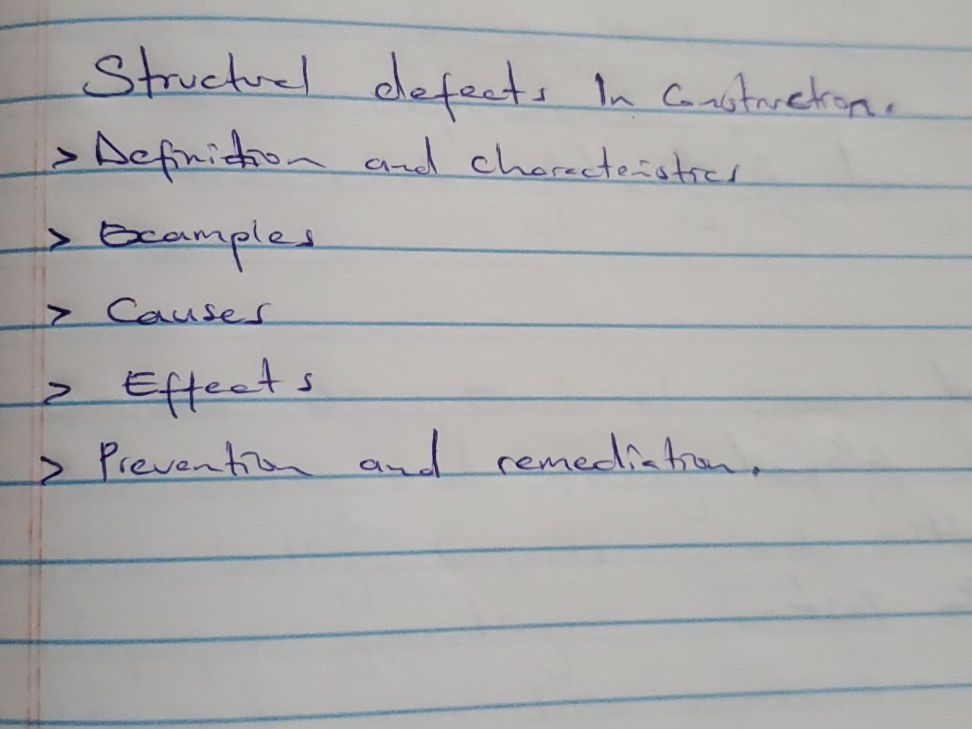 Structural defects In Construction.
> Definition and characteristics
> Examples
> Causes
> Effects
> Prevention and remediation.